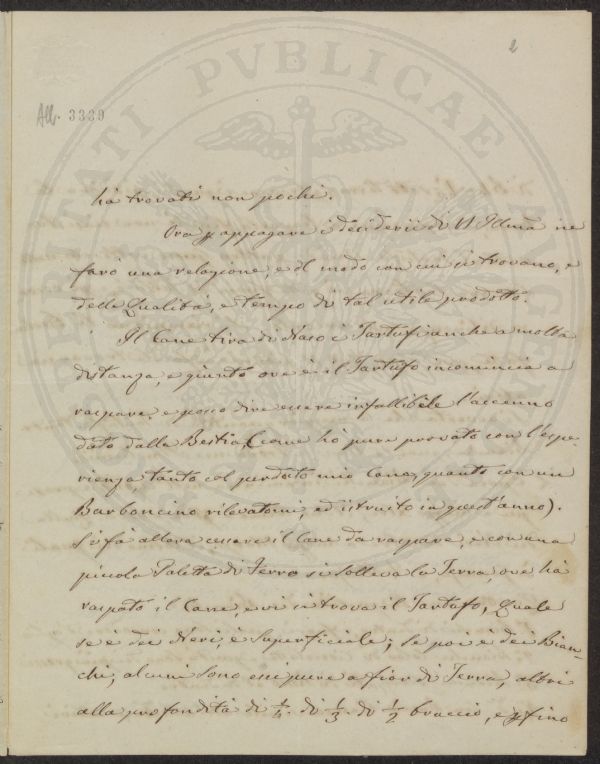 2
All. 3339
PROSPERITATI PVBLICAE AVGENDAE
hà trovati non pochi.
Ora p appagare i desiderii di V.S. Illma ne
farò una relazione, e il modo con cui si trovano, e
delle Qualità, e tempo di tal utile prodotto.
Il Cane tira di Naso i Tartufi anche a molta
distanza, e giunto ove è il Tartufo incomincia a
raspare, e posso dire essere infallibile l'accenno
dato dalla Bestia, (come hò pure provato con l'espe-
rienza tanto col perduto mio Cane, quanto con un
Barboncino rilevatomi, ed istruito in quest'anno).
Si fà allora cessare il Cane da raspare, e con una
piccola Paletta di Ferro si solleva la Terra, ove hà
raspato il Cane, e vi si trova il Tartufo, Quale
se è dei Neri, è Superficiale; se poi è dei Bian-
chi, alcuni sono essi pure a fior di Terra, altri
alla profondità di 1/4. di 1/3. di 1/2 braccio, e pfino